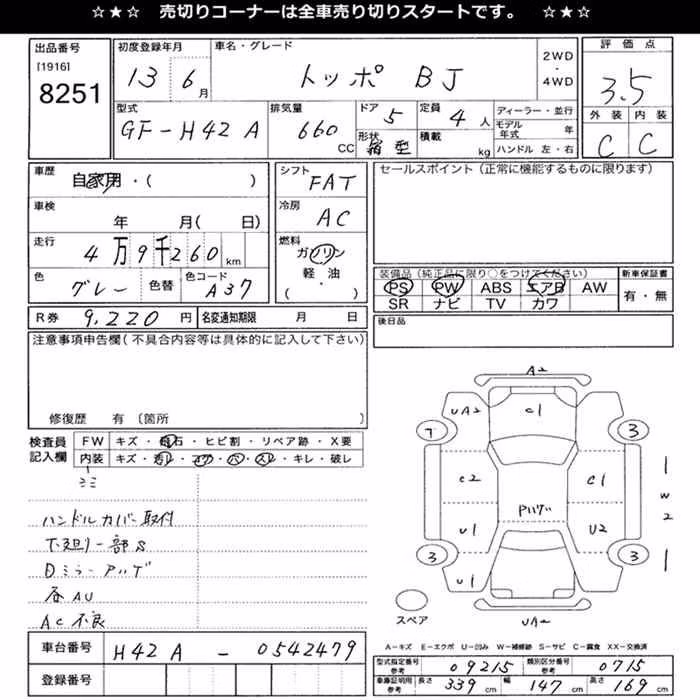 ☆★☆ 売切りコーナーは全車売り切りスタートです。 ☆★☆
出品番号 [1916] 8251
初度登録年月 13 6月
車名・グレード トッポ BJ
2WD・4WD
評価点 3.5
外装 C 内装 C
型式 GF-H42A
排気量 660 CC
ドア 5
形状 箱型
定員 4人
積載 kg
ディーラー・並行
モデル年式 年
ハンドル 左・右
車歴 自家用・( )
車検 年 月( 日)
走行 4万9千260km
色 グレー 色替 色コード A37
シフト FAT
冷房 AC
燃料 ガソリン 軽・油 ( ・ )
セールスポイント(正常に機能するものに限ります)
装備品(純正品に限り○をつけてください)
PS PW ABS エアB AW
SR ナビ TV カワ
新車保証書 有・無
R券 9,220円 名変通知期限 月 日
後日品
注意事項申告欄(不具合内容等は具体的に記入して下さい)
修復歴 有 〔箇所 〕
検査員記入欄
FW キズ・飛石・ヒビ割・リペア跡・X要
内装 キズ・汚レ・コゲ・穴・スレ・キレ・破レ
ゴミ
ハンドルカバー取付
下廻り一部S
Dミラーアハゲ
各AU
AC不良
A2
UA2
C1
7
3
C2
C1
W2
Pハゲ
U1
U2
3
3
U1
UA2
スペア
車台番号 H42A - 0542479
登録番号
A-キズ E-エクボ U-凹み W-補修跡 S-サビ C-腐食 XX-交換済
型式指定番号 参考 09215 類別区分番号 参考 0715
車庫証明用 参考 長さ 339cm 幅 147cm 高さ 169cm